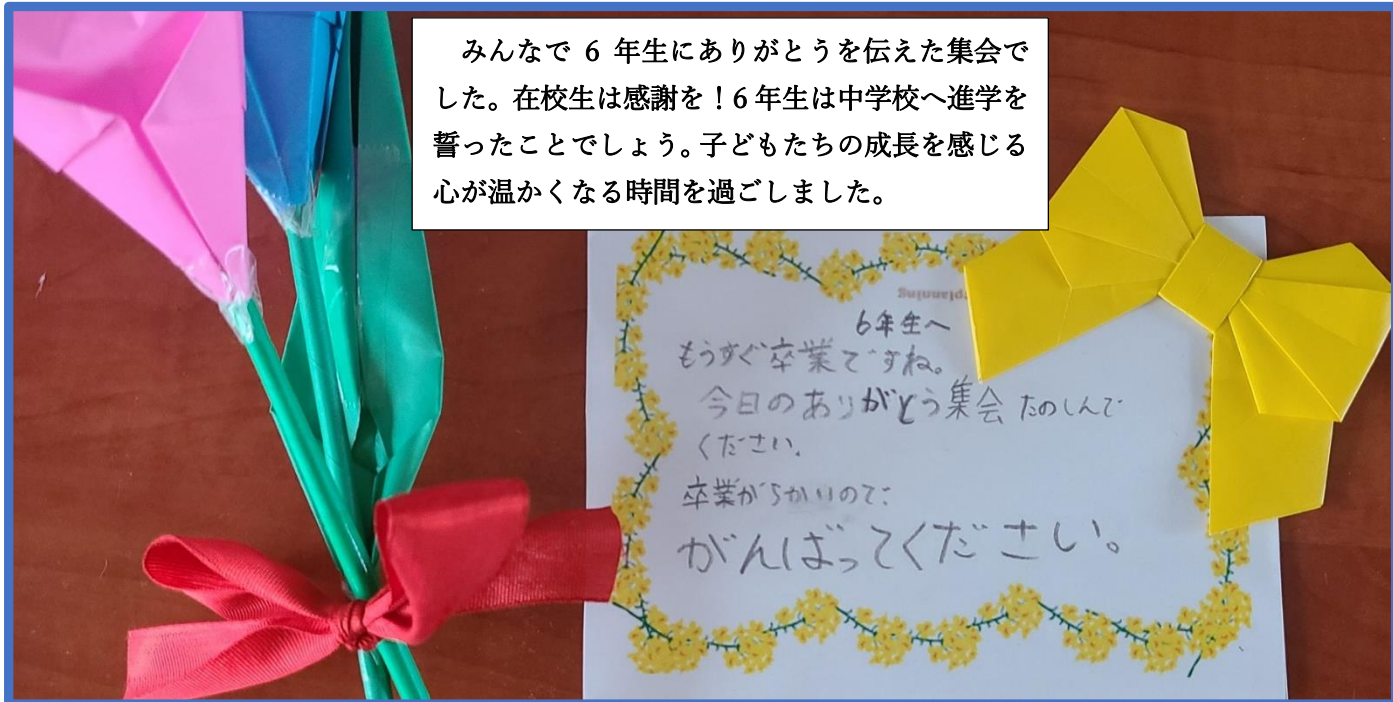 みんなで 6 年生にありがとうを伝えた集会で
した。在校生は感謝を！6 年生は中学校へ進学を
誓ったことでしょう。子どもたちの成長を感じる
心が温かくなる時間を過ごしました。
planning
6年生へ
もうすぐ卒業ですね。
今日のありがとう集会 たのしんで
ください。
卒業がちかいので
がんばってください。